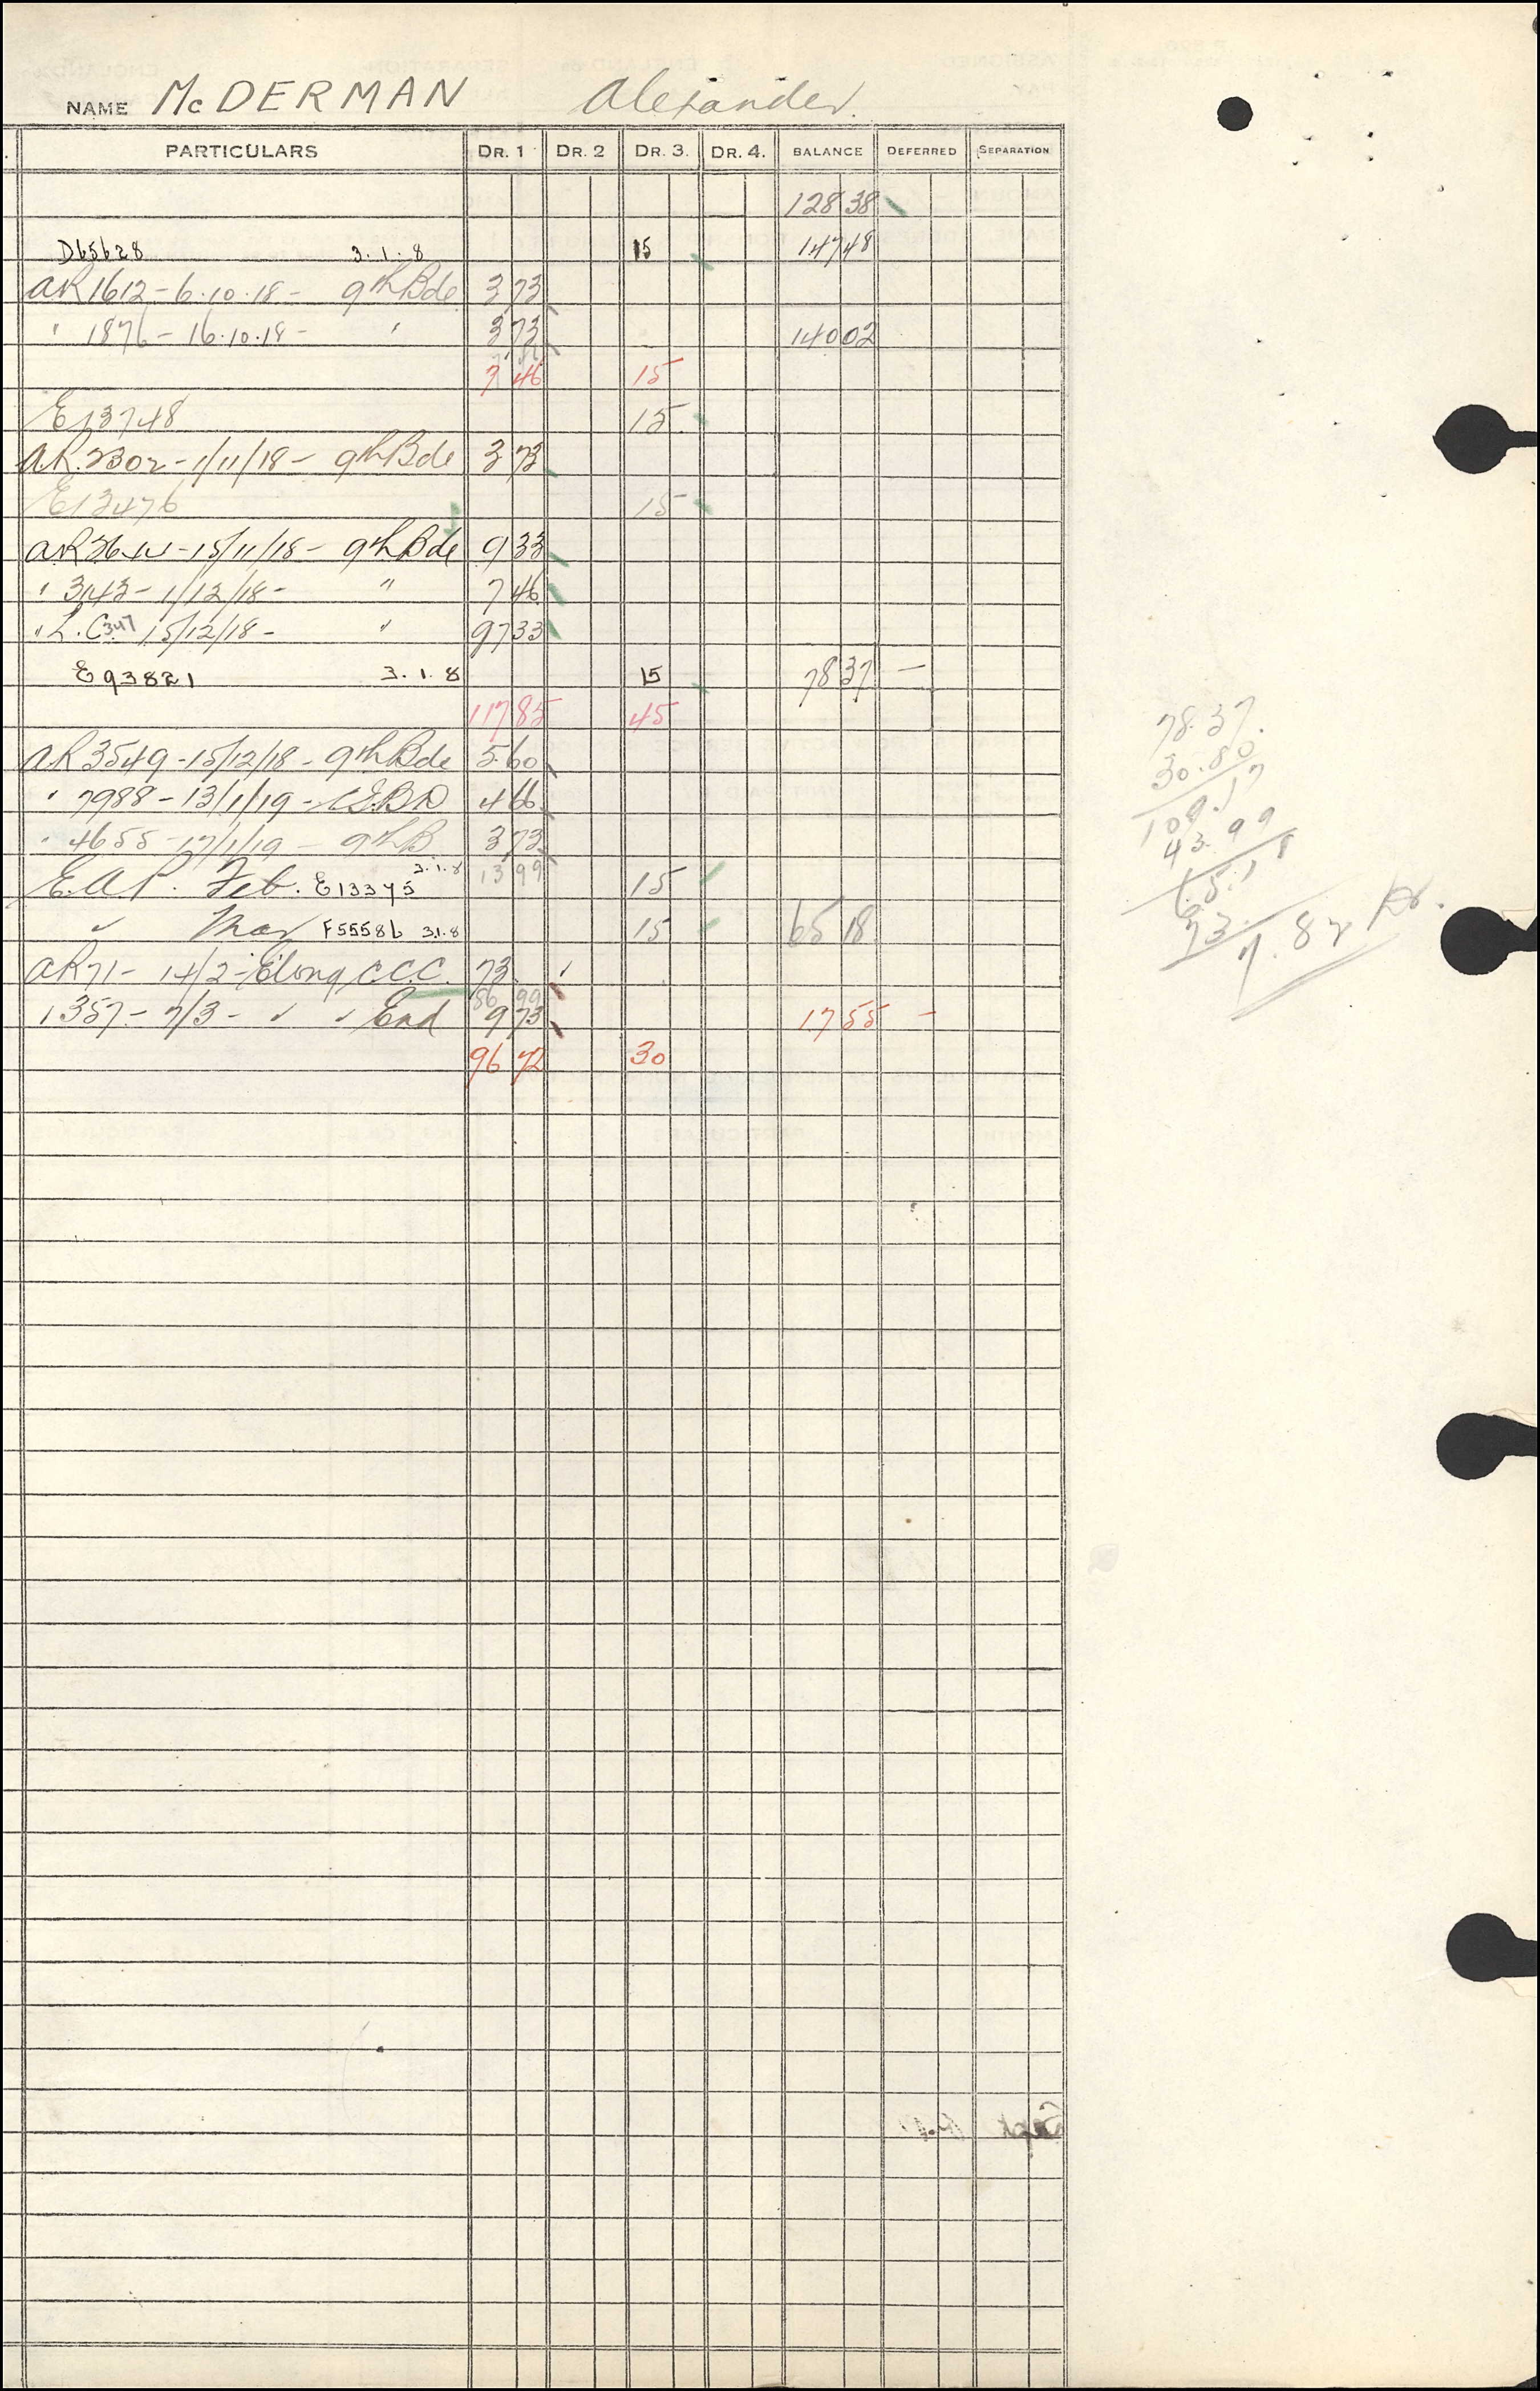 NAME McDERMAN Alexander.
PARTICULARS DR. 1 DR. 2 DR. 3. DR. 4. BALANCE DEFERRED SEPARATION
128 38
D65628 3.1.8 15 147 48
AR 1612 - 6.10.18 - 9th Bde 3 73
" 1876 - 16.10.18 - " 3 73 140 02
7 46 15
E13748 15
AR 2302 - 1/11/18 - 9th Bde 3 73
E13476 15
AR - 15/11/18 - 9th Bde 9 33
" 3143 - 1/12/18 - " 7 46
" L.C. 347 15/12/18 - " 97 33
E93821 3.1.8 15 78 37 —
117 85 45
AR 3549 - 15/12/18 - 9th Bde 5 60
" 7988 - 13/1/19 - 4 66
" 4655 - 17/1/19 - 9th B 3 73
E.A.P. Feb. E13375 3.1.8 13 99 15
" Mar F55586 3.1.8 15 65 18
AR 71 - 14/2 - C.C.C. 73
1357 - 7/3 - " " End 9 73 17 55 —
86 99
96 72 30
78.37
30.80
109.17
43.99
65.18
73.
7.82 Dr.